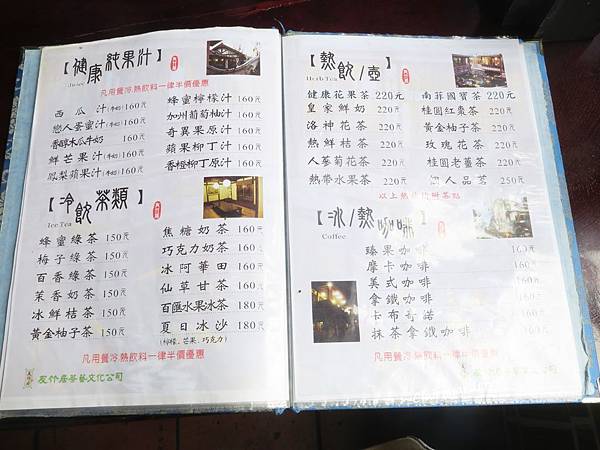 【健康純果汁】
Juice
凡用餐冷熱飲料一律半價優惠
西瓜汁(牛奶)160元
戀人蛋蜜汁(牛奶)160元
香醇木瓜牛奶 160元
鮮芒果汁(牛奶)160元
鳳梨蘋果汁(牛奶)160元
蜂蜜檸檬汁 160元
加州葡萄柚汁 160元
奇異果原汁 160元
蘋果柳丁汁 160元
香橙柳丁原汁 160元
【冷飲茶類】
Ice Tea
蜂蜜綠茶 150元
梅子綠茶 150元
百香綠茶 150元
茉香奶茶 150元
冰鮮桔茶 150元
黃金柚子茶 150元
焦糖奶茶 160元
巧克力奶茶 160元
冰阿華田 160元
仙草甘茶 160元
百匯水果冰茶 180元
夏日冰沙 180元
(檸檬.芒果.巧克力)
凡用餐冷熱飲料一律半價優惠
友竹居茶藝文化公司
【熱飲/壺】
Herb Tea
健康花果茶 220元
皇家鮮奶 220元
洛神花茶 220元
熱鮮桔茶 220元
人蔘菊花茶 220元
熱帶水果茶 220元
南非國寶茶 220元
桂圓紅棗茶 220元
黃金柚子茶 220元
玫瑰花茶 220元
桂圓老薑茶 220元
個人品茗 250元
以上熱飲均附茶點
【冰/熱咖啡】
Coffee
臻果咖啡 160元
摩卡咖啡 160元
美式咖啡 160元
拿鐵咖啡 160元
卡布奇諾 160元
抹茶拿鐵咖啡 160元
凡用餐冷熱飲料一律半價優惠